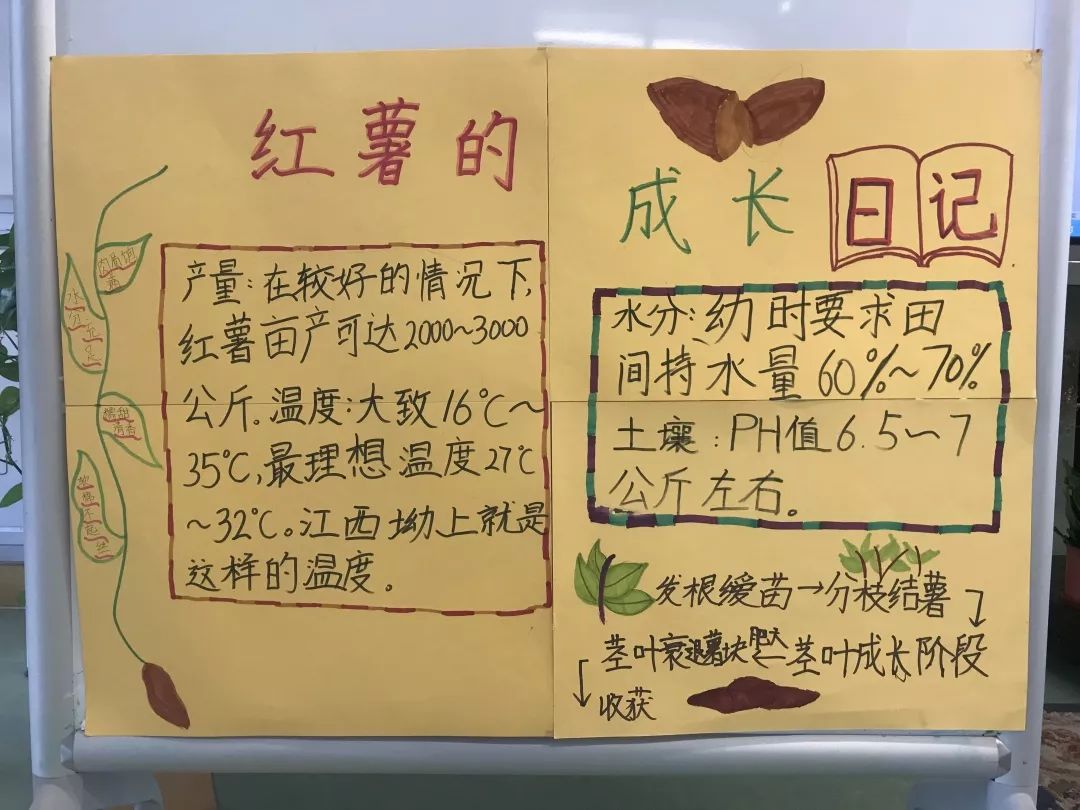 红薯的
成长日记
水分充足
产量:在较好的情况下,
红薯亩产可达2000~3000
公斤.温度:大致16℃~
35℃,最理想温度27℃
~32℃。江西坳上就是
这样的温度。
水分:幼时要求田
间持水量60%~70%
土壤:PH值6.5~7
公斤左右。
发根缓苗→分枝结薯
茎叶衰退薯块肥大←茎叶成长阶段
收获